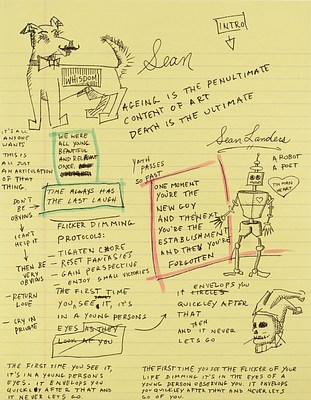 INTRO
Sean
WHISDOM
AGEING IS THE PENULTIMATE
CONTENT OF ART
DEATH IS THE ULTIMATE
Sean Landers
IT'S ALL
ANYONE
WANTS
THIS IS
ALL JUST
AN ARTICULATION
OF THAT
THING.
DON'T
BE
OBVIOUS
I CAN'T
HELP IT
THEN BE
VERY
OBVIOUS
- RETURN
LOVE
- CRY IN
PRIVATE
WE WERE
ALL YOUNG
BEAUTIFUL
AND RELEVANT
ONCE.
TIME ALWAYS HAS
THE LAST LAUGH
FLICKER DIMMING
PROTOCOLS:
- TIGHTEN CORE
- RESET FANTASIES
- GAIN PERSPECTIVE
- ENJOY SMALL VICTORIES
THE FIRST TIME
YOU SEE IT, IT'S
IN A YOUNG PERSONS
EYES AS THEY
LOOK AT YOU
YOUTH
PASSES
SO FAST
ONE MOMENT
YOU'RE THE
NEW GUY
AND THE NEXT
YOU'RE THE
ESTABLISHMENT
AND THEN YOU'RE
FORGOTTEN
A ROBOT
A POET
TIN MAN
HEART
ENVELOPS YOU
IT CIRCLES
QUICKLEY AFTER
THAT
THEN
AND IT NEVER
LETS GO
THE FIRST TIME YOU SEE IT,
IT'S IN A YOUNG PERSONS
EYES. IT ENVELOPS YOU
QUICKLEY AFTER THAT AND
IT NEVER LETS GO.
THE FIRST TIME YOU SEE THE FLICKER OF YOUR
LIFE DIMMING IT'S IN THE EYES OF A
YOUNG PERSON OBSERVING YOU. IT ENVELOPS
YOU QUICKLEY AFTER THAT AND NEVER LETS
GO OF YOU.